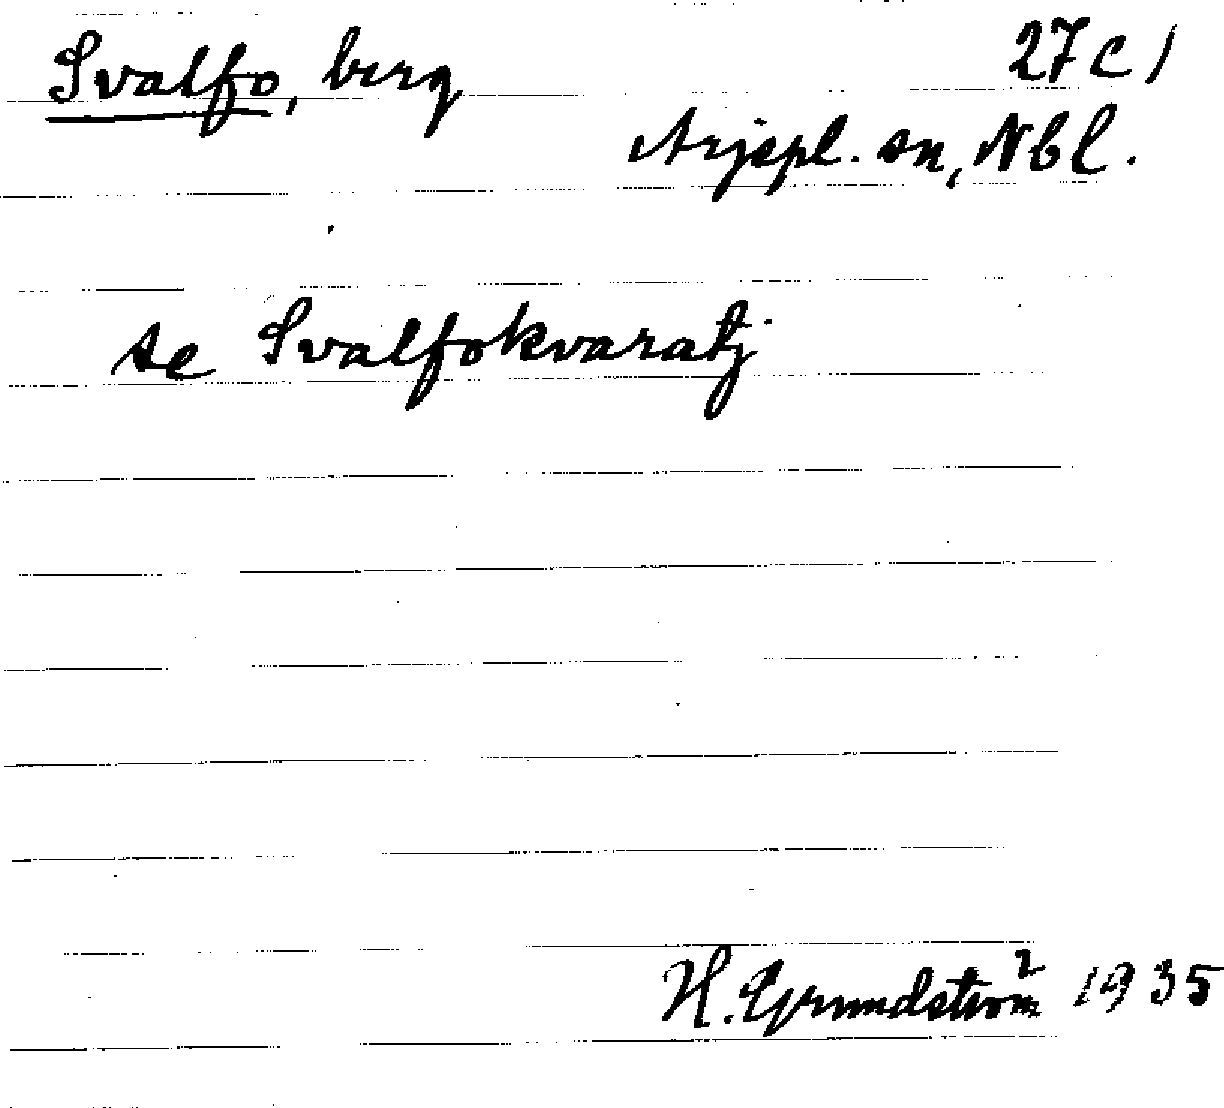 Svalfo, berg
27 C 1
Arjepl. sn, Nbl.
se Svalfokvaratj
H. Grundström 1935